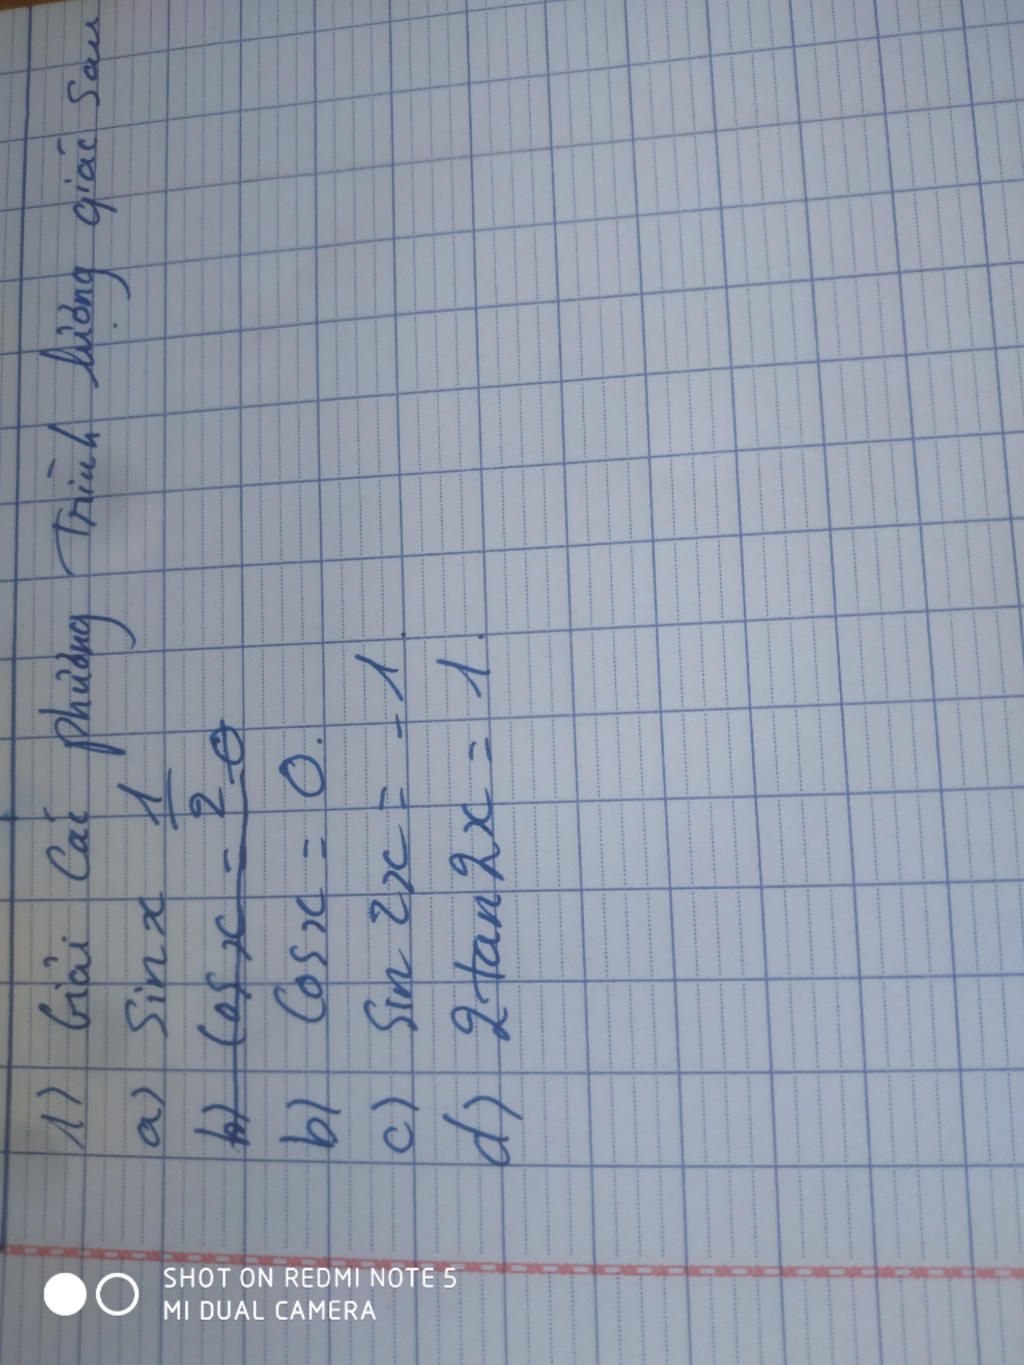 1) Giải Các phương Trình lượng giác Sau
a) Sin x 1/2
b) Cos x = 0
b) Cos x = 0.
c) Sin 2x = -1
d) 2tan2x = 1.
SHOT ON REDMI NOTE 5
MI DUAL CAMERA